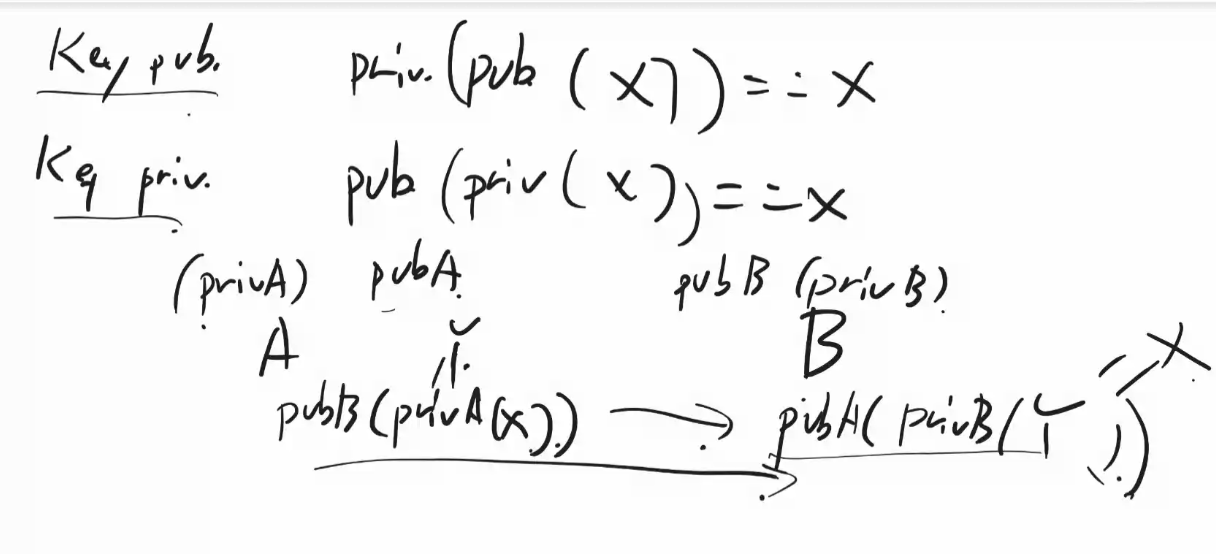 Key pub. priv. (pub (x)) == x
Key priv. pub (priv (x)) == x
(privA) pubA pubB (privB)
A B
Y
pubB (privA (x)) → pubA( privB (Y)) = x